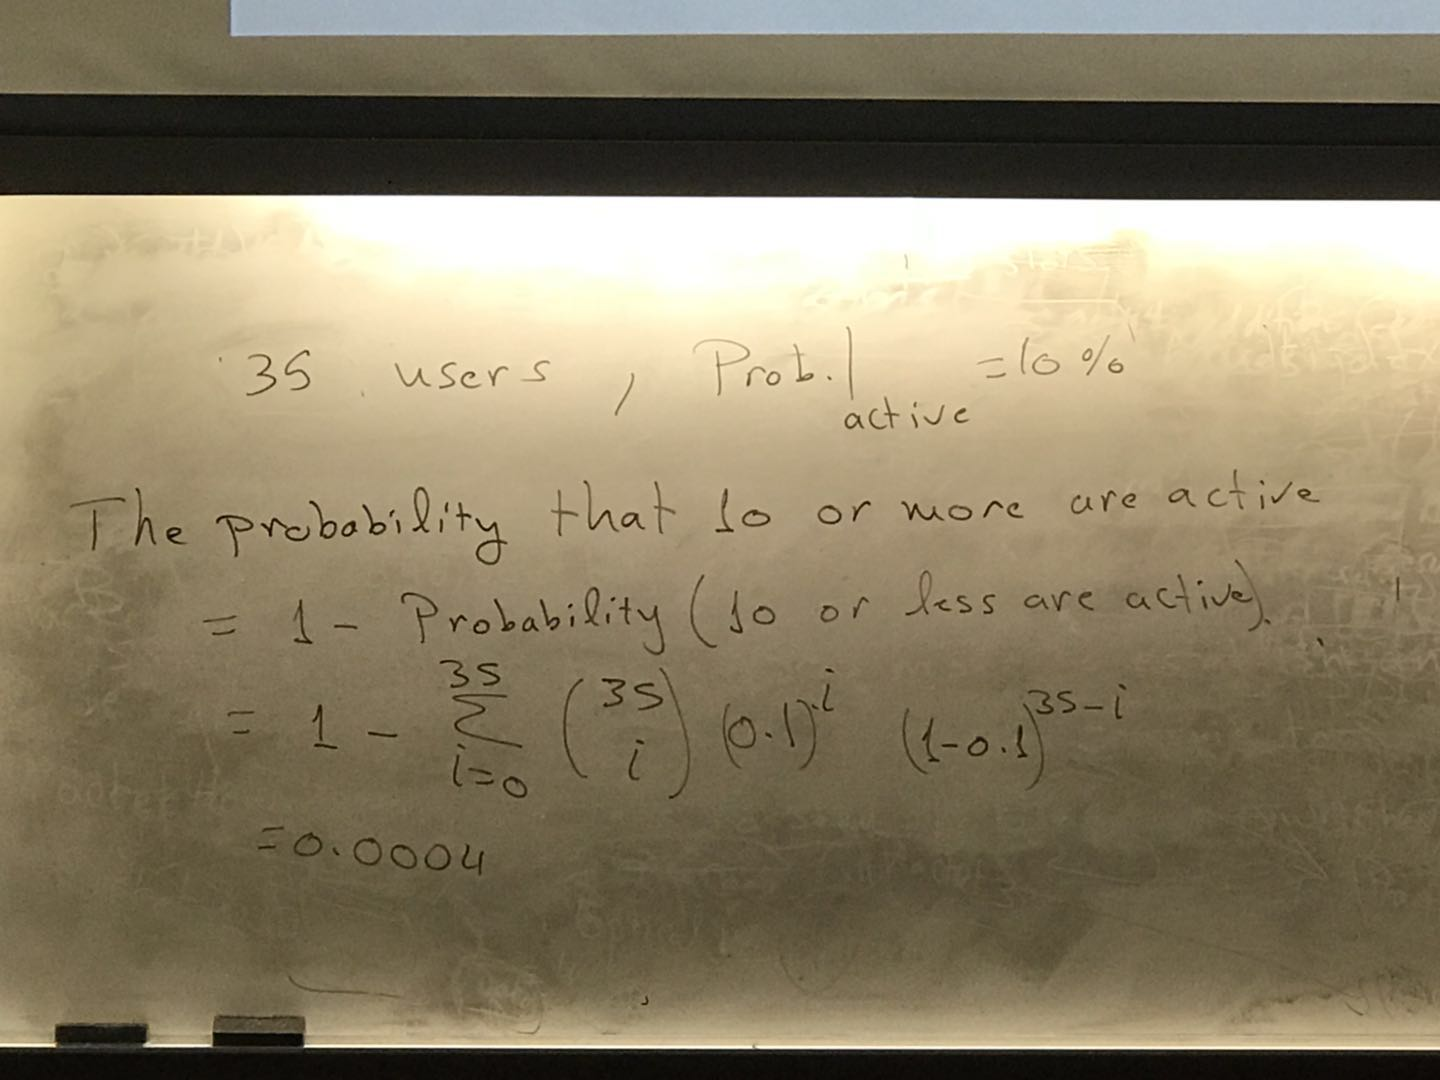 35 users, Prob.|active = 10%
The probability that 10 or more are active
= 1 - Probability (10 or less are active).
= 1 - 35 Σ i=0 (35 i) (0.1)^i (1-0.1)^35-i
= 0.0004